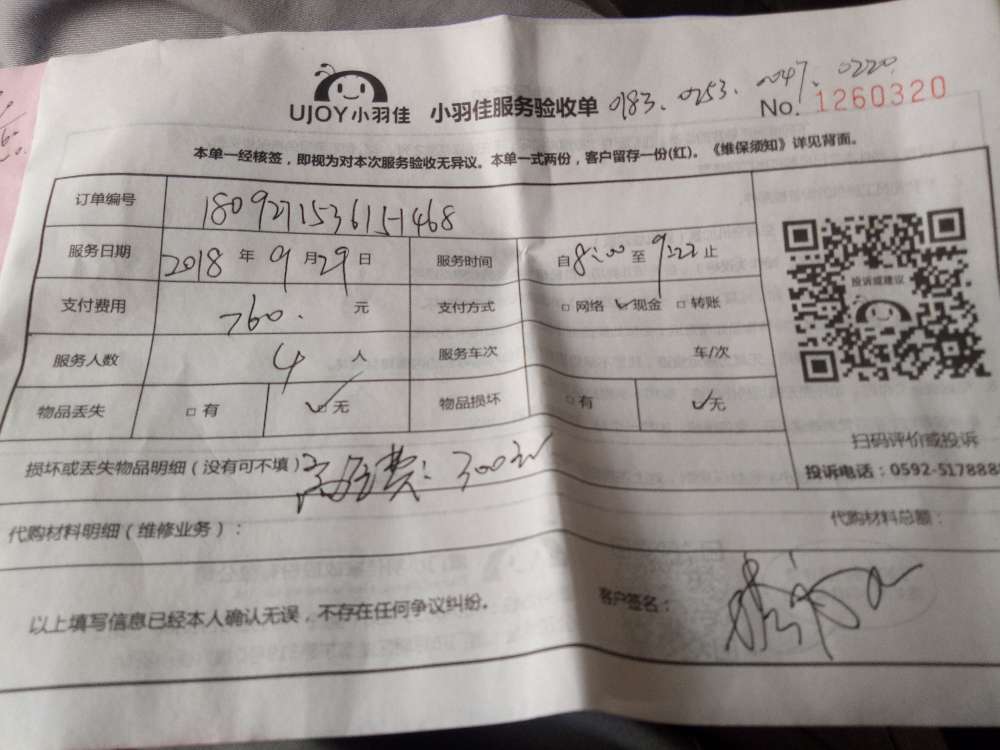 UJOY小羽佳 小羽佳服务验收单 0183、0253、0047、0220
No. 1260320
本单一经核签，即视为对本次服务验收无异议。本单一式两份，客户留存一份(红)。《维保须知》详见背面。
订单编号 1809271536151468
服务日期 2018 年 9 月 29 日 服务时间 自 8:00 至 9:22 止
支付费用 760. 元 支付方式 □ 网络 ☑ 现金 □ 转账
服务人数 4 人 服务车次 车/次
物品丢失 □ 有 ☑ 无 物品损坏 □ 有 ☑ 无
投诉或建议
扫码评价或投诉
投诉电话：0592-5178888
损坏或丢失物品明细（没有可不填） 费：300元
代购材料明细（维修业务）： 代购材料总额：
以上填写信息已经本人确认无误，不存在任何争议纠纷。 客户签名：